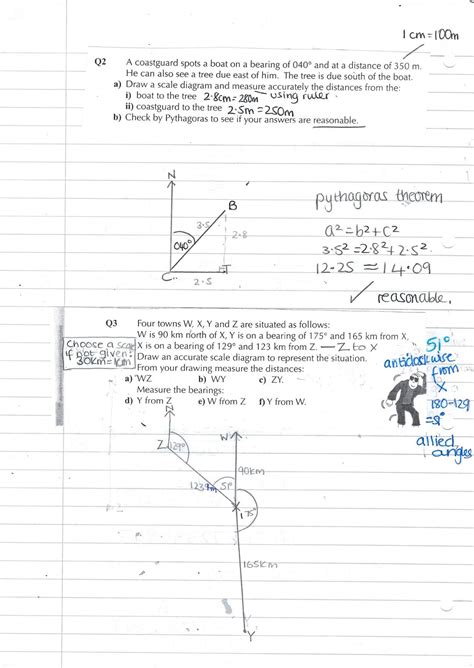 1cm=100m
Q2 A coastguard spots a boat on a bearing of 040° and at a distance of 350 m.
He can also see a tree due east of him. The tree is due south of the boat.
a) Draw a scale diagram and measure accurately the distances from the:
i) boat to the tree 2.8cm=280m using ruler.
ii) coastguard to the tree 2.5m=250m
b) Check by Pythagoras to see if your answers are reasonable.
N
B
3.5
2.8
040°
C
T
2.5
pythagoras theorem
a²=b²+c²
3.5²=2.8²+2.5²
12.25≈14.09
✓ reasonable.
Q3 Four towns W, X, Y and Z are situated as follows:
W is 90 km north of X, Y is on a bearing of 175° and 165 km from X.
X is on a bearing of 129° and 123 km from Z. — Z to X
Draw an accurate scale diagram to represent the situation.
From your drawing measure the distances:
a) WZ b) WY c) ZY.
Measure the bearings:
d) Y from Z e) W from Z f) Y from W.
choose a scale
if not given:
30km=1cm
51°
anticlockwise
from
X
180-129
=51°
allied
angles
N
Z
129°
W
90km
123km
51°
X
175°
165km
Y